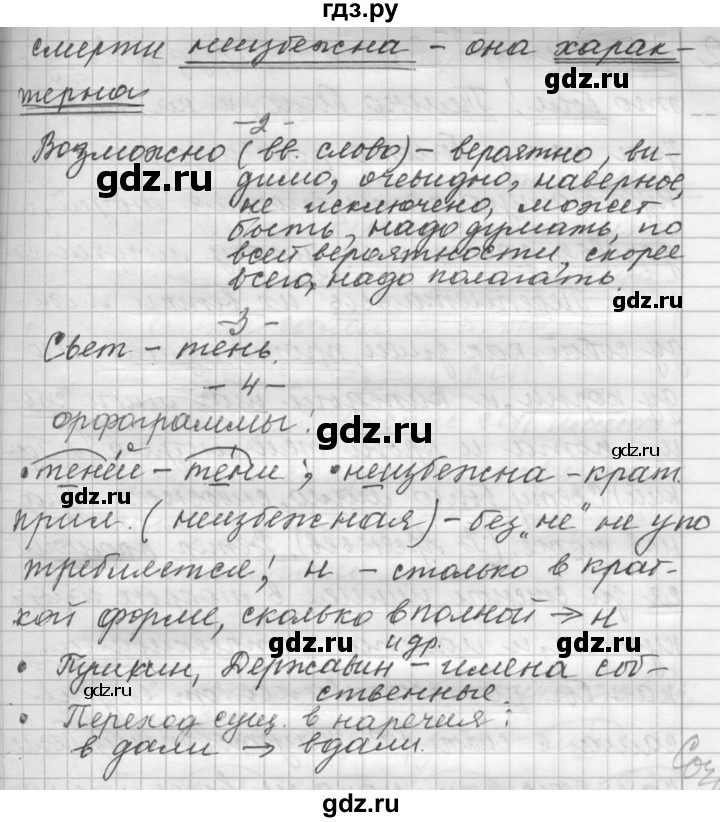 гдз.ру
смерти неизбежна - она харак-
gdz.ru
терна
-2-
Возможно (вв. слово) - вероятно, ви-
gdz.ru
димо, очевидно, наверное,
не исключено, может
быть, надо думать, по
всей вероятности, скорее
всего, надо полагать.
gdz.ru
-3-
Свет - тень.
-4-
орфограммы:
gdz.ru
• теней - тени; • неизбежна - крат.
прил. (неизбежная) - без "не" не упо
требляется; н - столько в крат-
кой форме, сколько в полной → н
gdz.ru gdz.ru
и др.
• Пушкин, Державин - имена соб-
ственные.
• Переход сущ. в наречия:
в дали → вдали.
Соч
gdz.ru
gdz.ru